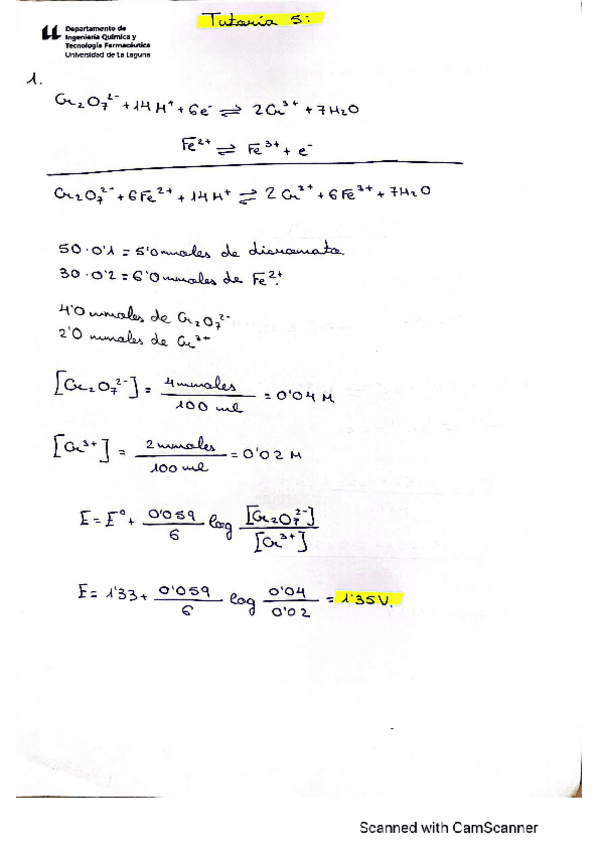 Tutoría 5:
Departamento de
Ingeniería Química y
Tecnología Farmacéutica
Universidad de La Laguna
1.
Cr₂O₇²⁻ + 14H⁺ + 6e⁻ ⇌ 2Cr³⁺ + 7H₂O
Fe²⁺ ⇌ Fe³⁺ + e⁻
Cr₂O₇²⁻ + 6Fe²⁺ + 14H⁺ ⇌ 2Cr³⁺ + 6Fe³⁺ + 7H₂O
50·0'1 = 5'0 mmoles de dicromato.
30·0'2 = 6'0 mmoles de Fe²⁺.
4'0 mmoles de Cr₂O₇²⁻
2'0 mmoles de Cr³⁺
[Cr₂O₇²⁻] = 4 mmoles / 100 ml = 0'04 M
[Cr³⁺] = 2 mmoles / 100 ml = 0'02 M
E = E° + 0'059 / 6 log [Cr₂O₇²⁻] / [Cr³⁺]
E = 1'33 + 0'059 / 6 log 0'04 / 0'02 = 1'35 V.
Scanned with CamScanner